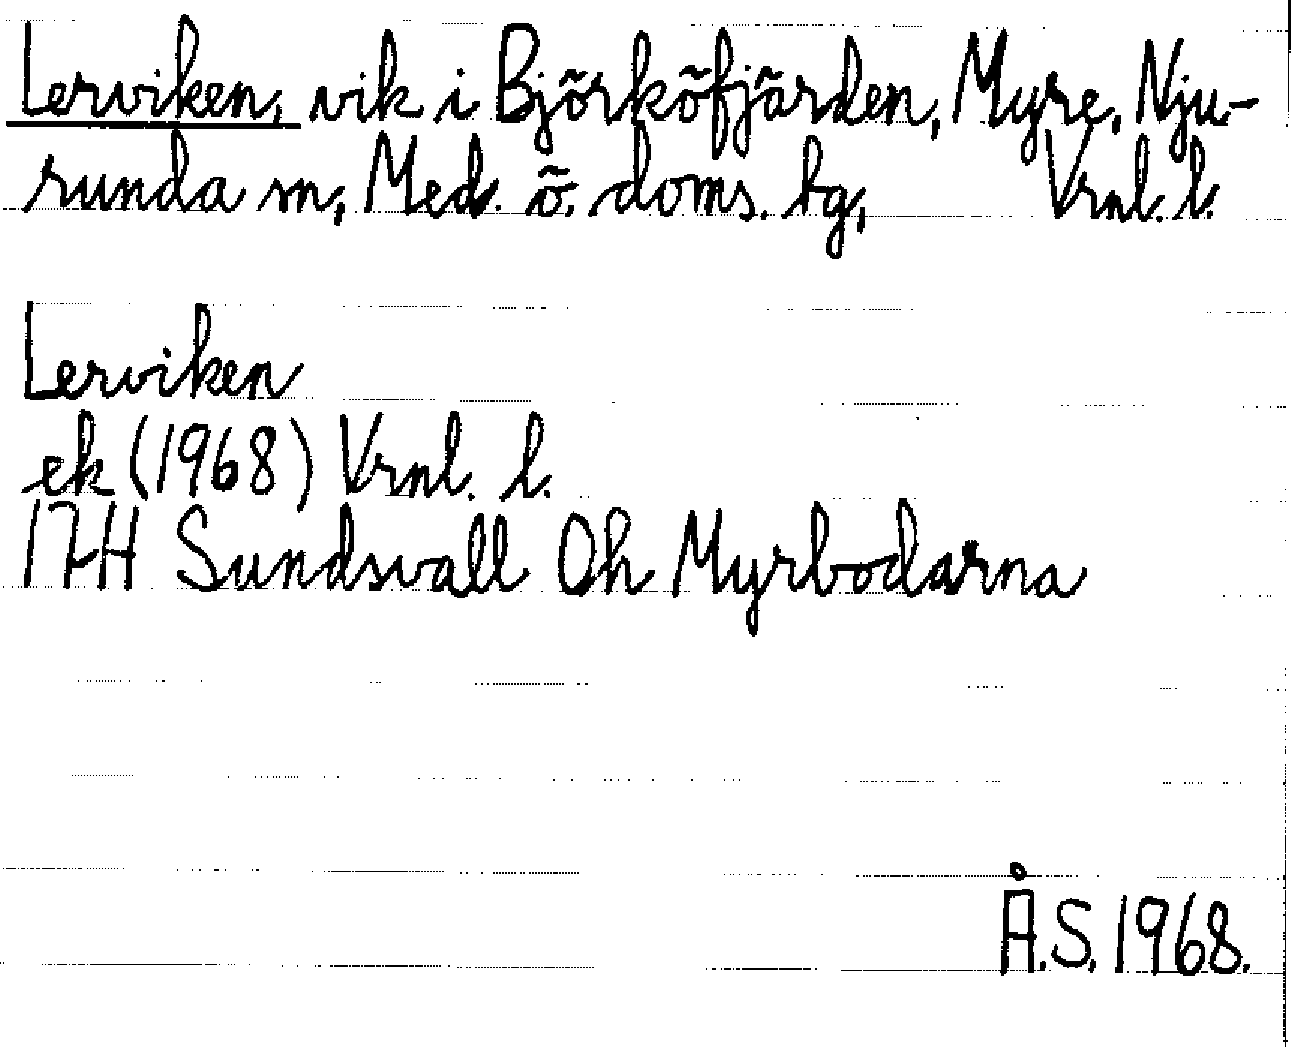 Lerviken, vik i Björköfjärden, Myre, Nju-
runda sn, Med. ö. doms. bg, Vrnl. l.
Lerviken
ek (1968) Vrnl. l.
17H Sundsvall 0h Myrbodarna
Å.S. 1968.